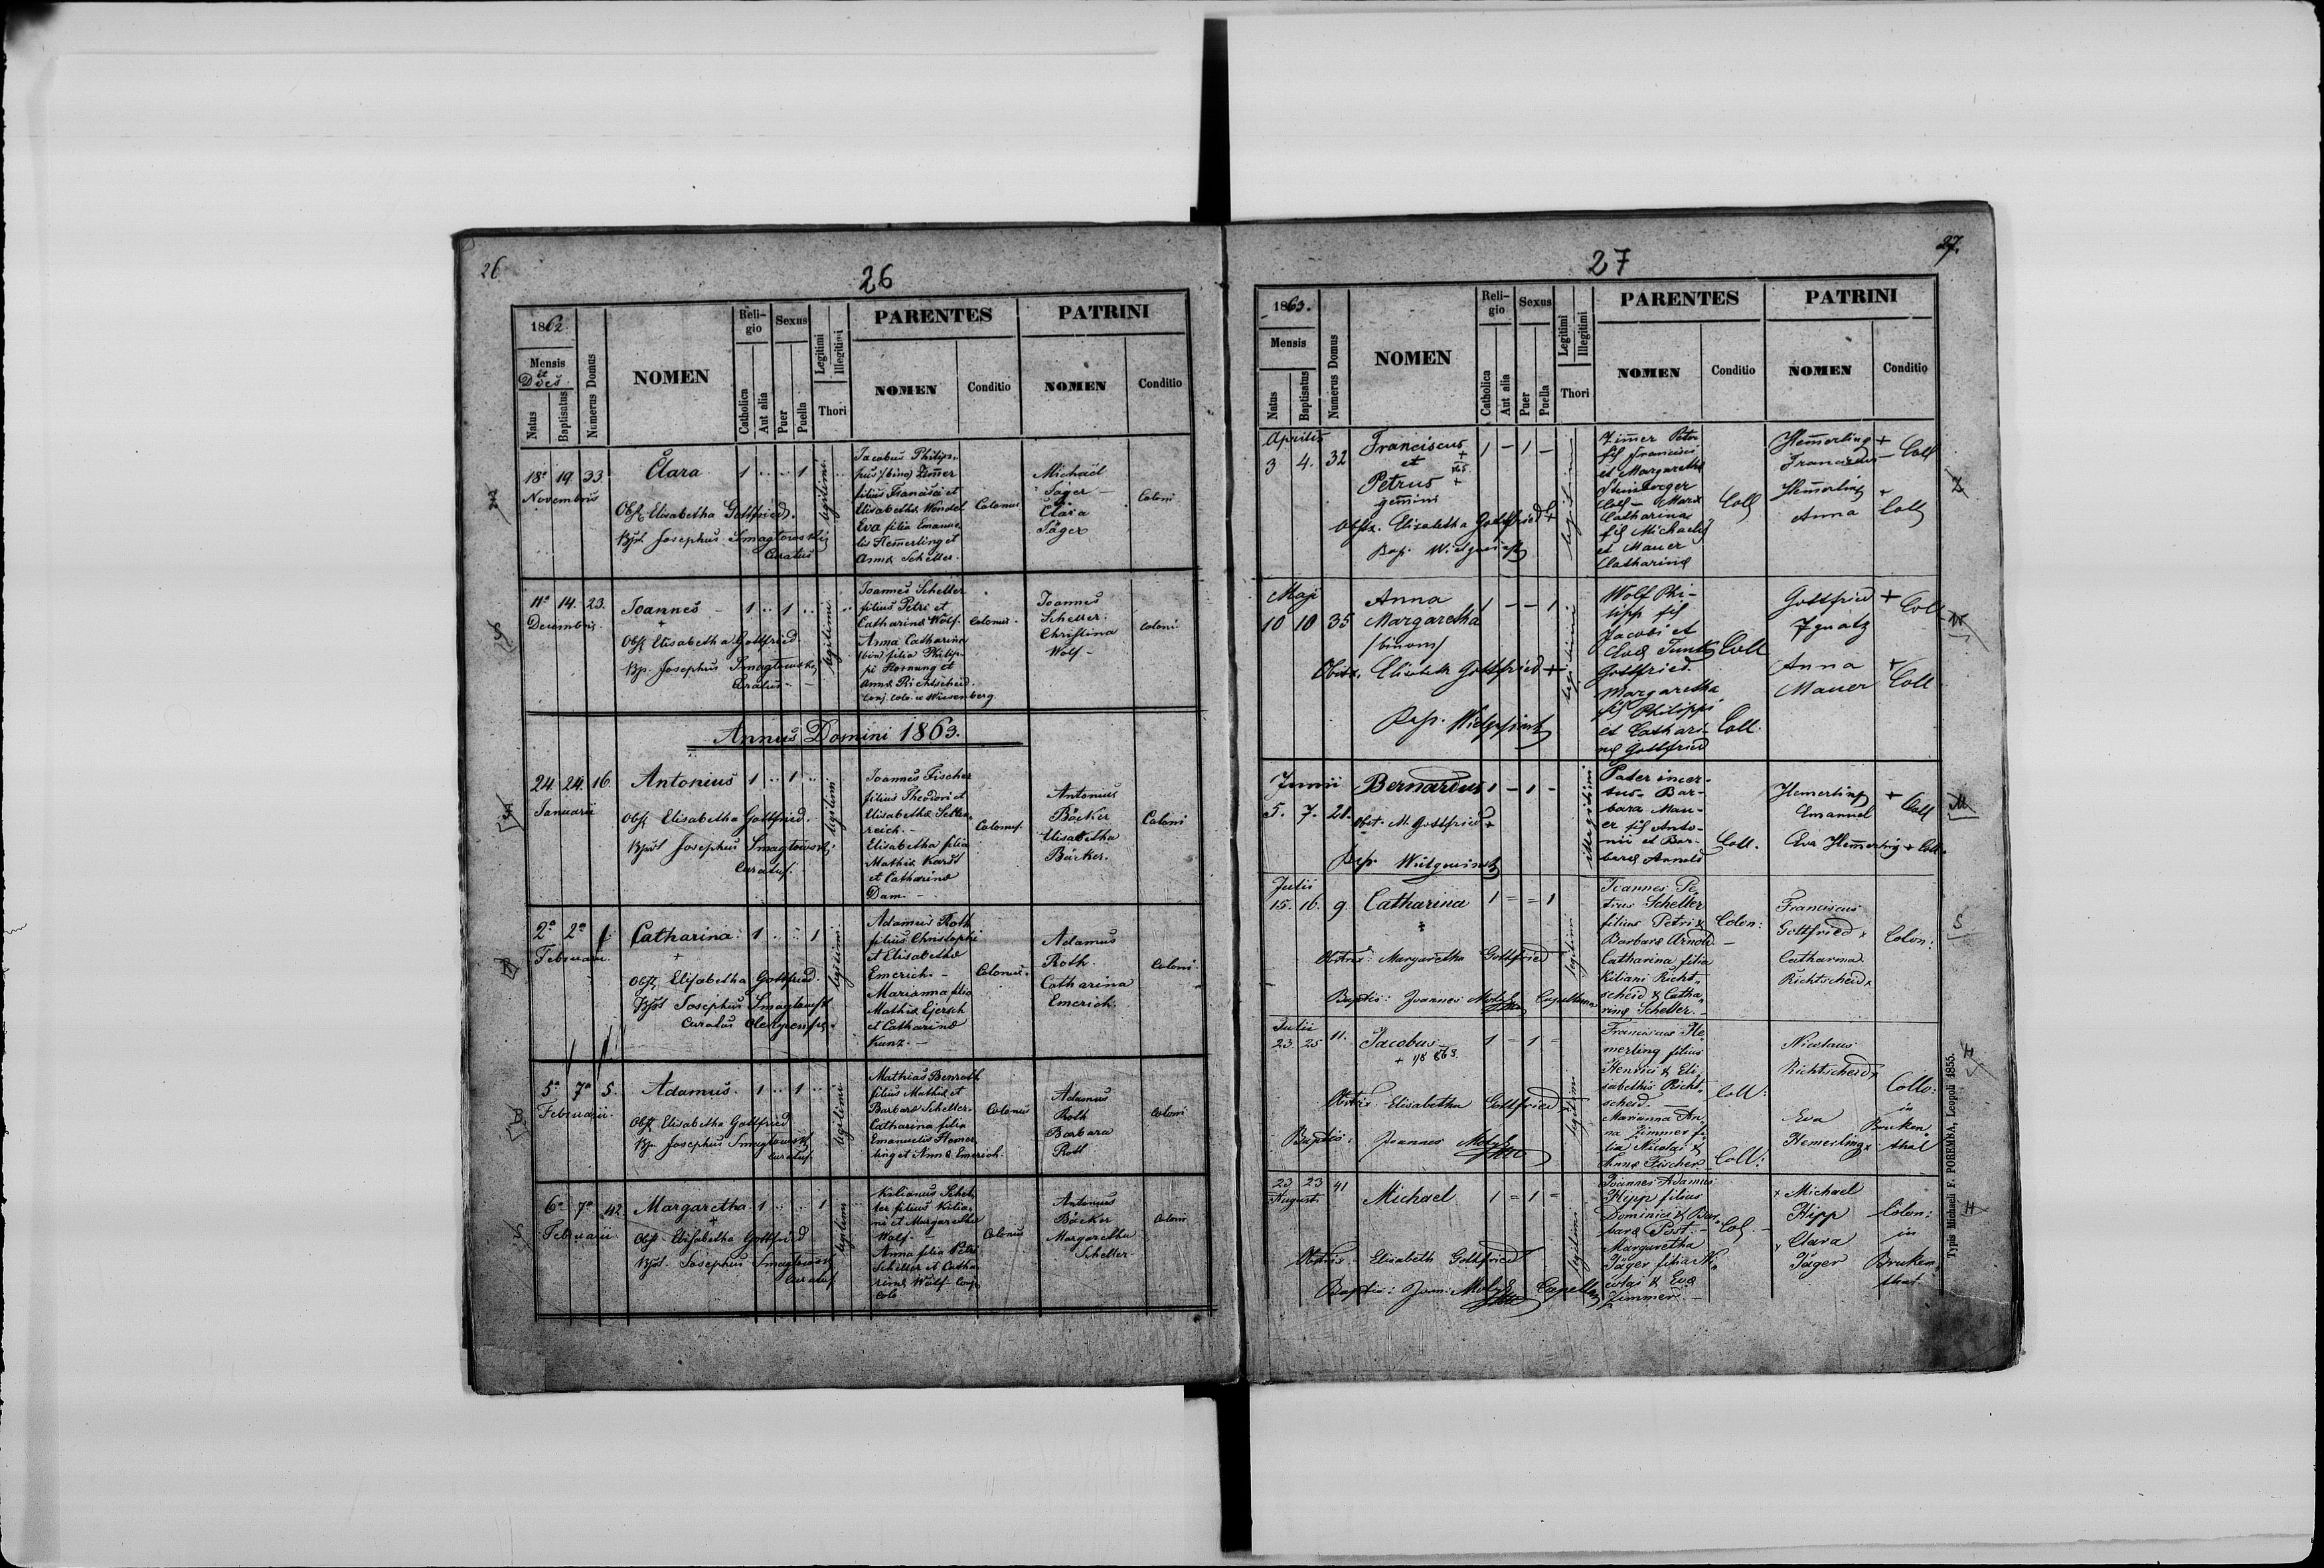 26
26
1862.
Mensis
et
Dies
Natus
Baptisatus
Numerus Domus
NOMEN
Reli-
gio
Catholica
Aut alia
Sexus
Puer
Puella
Legitimi
Illegitimi
Thori
PARENTES
NOMEN
Conditio
PATRINI
NOMEN
Conditio
18a 19. 33.
Novembris
Clara
1 1
legitimi
Obst Elisabetha Gottfried.
Bpt Josephus Smagłowski
Curatus
Jacobus Philip-
pus /bino/ Zim̄er
filius Francisci et
Elisabetha Wendel
Eva filia Emanue-
lis Hem̄erling et
Anna Scheller.
Colonus
Michaël
Jäger -
Clara
Jäger
Coloni
11a 14. 23.
Decembris.
Joannes -
+
1 1
legitimi
Obst Elisabetha Gottfried.
Bp. Josephus Smagłowski
Curatus -
Joannes Scheller
filius Petri et
Catharina Wolf.
Anna Catharina
/bin/ filia Philip-
pi Hornung et
Anna Richtscheid.
conj. colo. a Wiesenberg.
Colonus.
Joannes
Scheller.
Christina
Wolf -
coloni
Annus Domini 1863.
24. 24. 16.
Januarii
Antonius
1 1
legitimi
Obst Elisabetha Gottfried.
Bpst Josephus Smagłowski
Curatus.
Joannes Fischer
filius Theodori et
Elisabetha
reich. -
Elisabetha filia
Mathiæ Karst
et Catharina
Dam -
Colonus.
Antonius
Böcker
Elisabetha
Böcker.
Coloni
2a 2a
Februarii.
Catharina.
+
1 1
legitimi
Obst Elisabetha Gottfried.
Bpst Josephus Smagłowski
Curatus
Adamus Roth
filius Christophi
et Elisabetha
Emerich. -
Marianna filia
Mathiæ
et Catharina
Kunz. -
Colonus.
Adamus
Roth.
Catharina
Emerich.
Coloni
5a 7a 5.
Februarii.
Adamus.
1 1
legitimi
Obst Elisabetha Gottfried
Bp. Josephus Smagłowski
curatus
Mathias Benroth
filius Mathiæ et
Barbara Scheller.
Catharina filia
Emanuelis Hemer
ling et Anna Emerich.
Colonus
Adamus
Roth
Barbara
Roth
coloni
6a 7a 42.
Februarii
Margaretha
+
1 1
legitimi
Obst Elisabetha Gottfried
Bpst. Josephus Smagłowski
Curatus
Kilianus Schel-
ler filius Kilia-
ni et Margaretha
Wolf. -
Anna filia Petri
Scheller et Catha-
rina Wolf Conj.
colo
Colonus
Antonius
Böcker
Margaretha
Scheller.
Coloni
27
27.
1863.
Mensis
Natus
Baptisatus
Numerus Domus
NOMEN
Reli-
gio
Catholica
Aut alia
Sexus
Puer
Puella
Legitimi
Illegitimi
Thori
PARENTES
NOMEN
Conditio
PATRINI
NOMEN
Conditio
Aprilis
3 4. 32
Franciscus
et
Petrus +
gem̄ini
1 - 1 -
legitimi
Obstx. Elizabetha Gottfried +
Bap.
Zim̄er Peter
fil Francisci
et Margaretha
Steinberger
Coll - Marx
Catharina
fil Michaelis
et Mauer
Catharina
Coll
Hem̄erling +
Franciscus -
Coll
Hem̄erling +
Anna
Coll
Z
Maji
10 10 35
Anna
Margaretha
/binom/
1 - - 1
legitimi
Obstx. Elisabeth Gottfried +
Bap.
Wolf Phi-
lipp fil
Jacobi et
Gottfried
Margaretha
fil Philippi
et Cathari-
na Gottfried
Coll
Coll
Gottfried +
Ignatz
Coll
Anna +
Mauer
Coll
W
Junii
5. 7. 21.
Bernardus
1 - 1 -
illegitimi
Obst. M. Gottfried +
Bap.
Pater incer-
tus - Bar-
bara Mau-
er fil Anto-
nii et Bar-
bara Arnold
Coll.
Hemerling +
Emanuel
Coll
Eva Hem̄erling + Coll.
M
Julii
15. 16. 9.
Catharina
1 = = 1
legitimi
Obstrix: Margaretha Gottfried
Baptis: Joannes Capellanus
Joannes Pe-
trus Scheller
filius Petri &
Barbara Arnold -
Catharina filia
Kiliani Richt-
scheid & Catha-
rina Scheller. -
Colon:
Franciscus
Gottfried x
Catharina
Richtscheid x
Colon:
S
Julii
23. 25 11.
Jacobus
1 = 1 =
legitimi
Obstrix. Elisabetha Gottfried
Baptis: Joannes
Franciscus He-
merling filius
Henrici & Eli-
sabethis Richt-
scheid. -
Marianna An-
na Zimmer fi-
lia Nicolai &
Anna Fischer
Coll:
Coll:
Nicolaus
Richtscheid x
Eva
Hemerling x
Collo:
in
Bruken-
thal
H
23 23 41
Augusti
Michael
1 = 1 =
legitimi.
Obstrix Elisabeth Gottfried
Baptis: Joan: Capellan
Joannes Adamus
Hipp filius
Dominici & Bar-
bara
Margaretha
Jäger filia Ni-
colai & Eva
Zimmer. -
Col. -
x Michael
Hipp
x Clara
Jäger
Colon:
in
Bruken-
thal
H
Typis Michaeli F. POREMBA, Leopoli 1855.